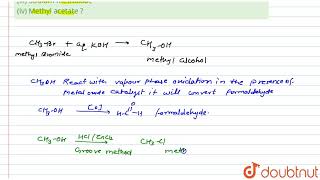 (iii) Sodium methoxide
(iv) Methyl acetate ?
CH₃-Br + aq KOH → CH₃-OH
methyl Bromide methyl alcohol
CH₃OH React with vapour phase oxidation in the presence of
metal oxide catalyst it will convert formaldehyde
CH₃-OH [O] → H-C-H formaldehyde.
O
CH₃-OH HCl/ZnCl₂ → CH₃-Cl
Groove method meth
doubtnut